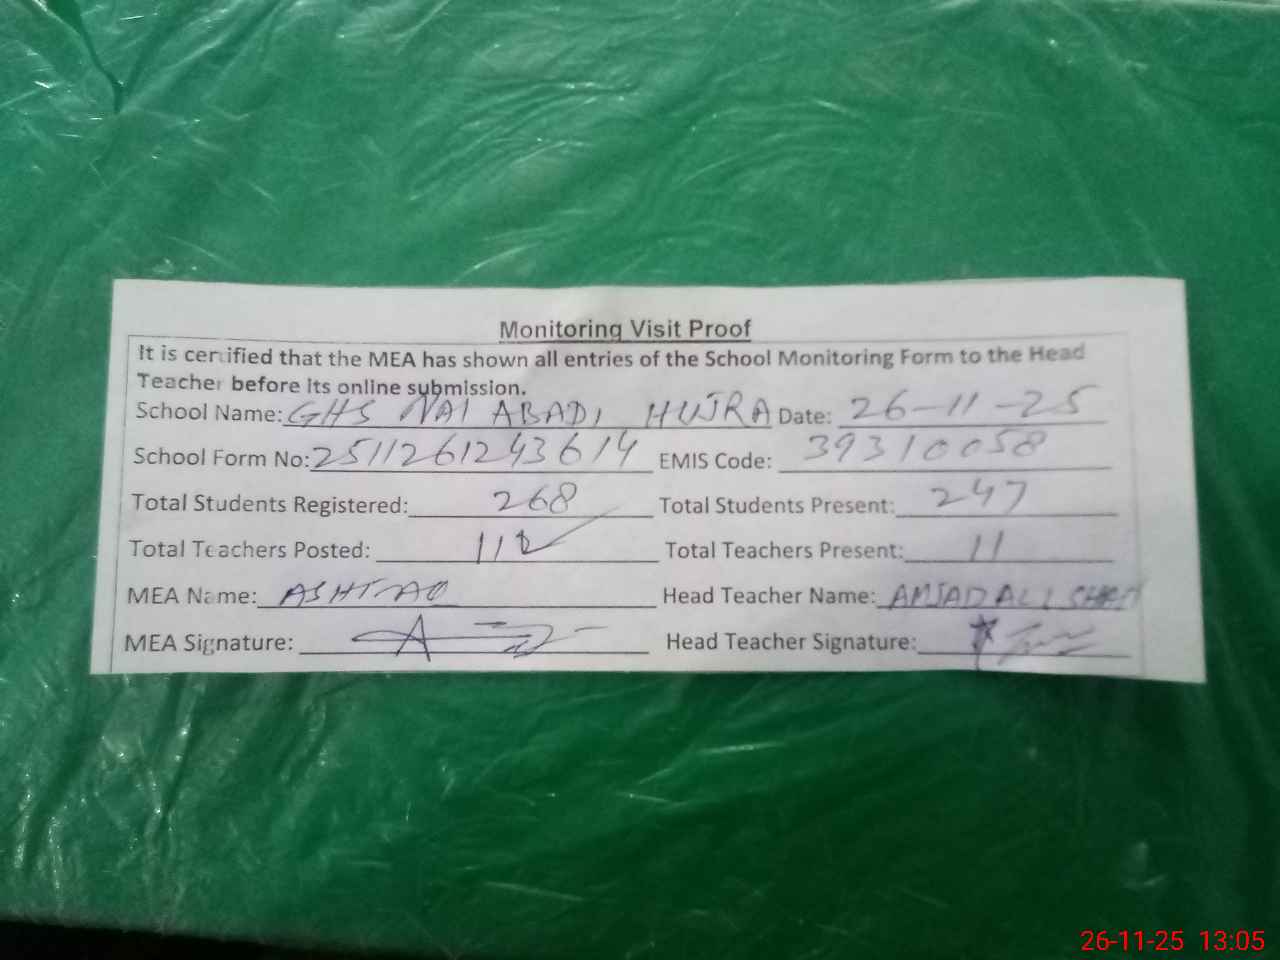 Monitoring Visit Proof
It is certified that the MEA has shown all entries of the School Monitoring Form to the Head
Teacher before its online submission.
School Name: GHS NAI ABADI HUJRA Date: 26-11-25
School Form No: 2511261243614 EMIS Code: 39310058
Total Students Registered: 268 Total Students Present: 247
Total Teachers Posted: Total Teachers Present: 11
MEA Name: Head Teacher Name: AMJAD ALI
MEA Signature: Head Teacher Signature:
26-11-25 13:05